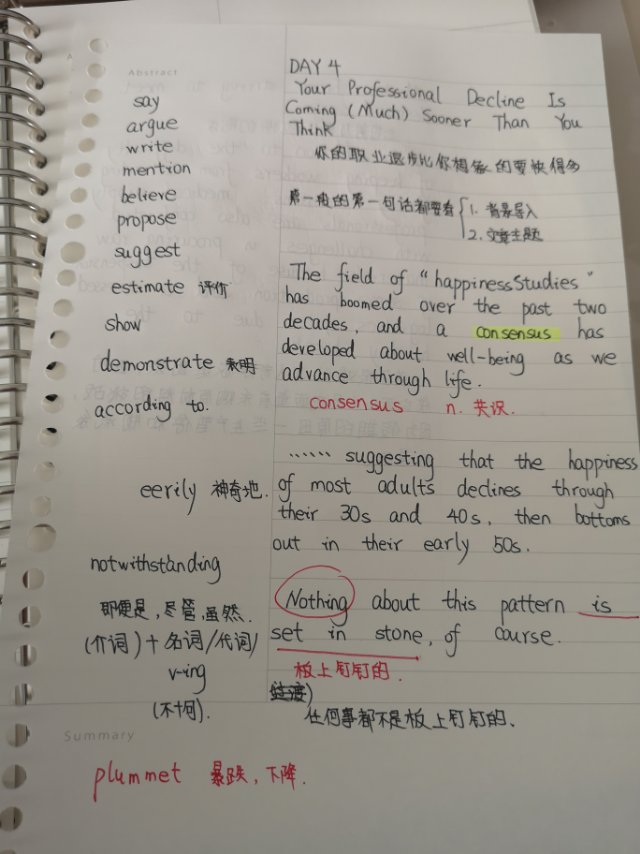 Abstract
say
argue
write
mention
believe
propose
suggest
estimate 评价
show
demonstrate 表明
according to.
eerily 神奇地.
notwithstanding
即便是,尽管,虽然.
(介词)+名词/代词/
v-ing
(不+句).
DAY 4
Your Professional Decline Is
Coming (Much) Sooner Than You
Think
你的职业退步比你想象的要快得多
第一段的第一句话都要看
1. 背景导入
2. 文章主题
The field of "happiness Studies"
has boomed over the past two
decades, and a consensus has
developed about well-being as we
advance through life.
consensus n. 共识.
...... suggesting that the happiness
of most adults declines through
their 30s and 40s, then bottoms
out in their early 50s.
Nothing about this pattern is
set in stone, of course.
板上钉钉的.
任何事都不是板上钉钉的、
Summary
plummet 暴跌,下降.